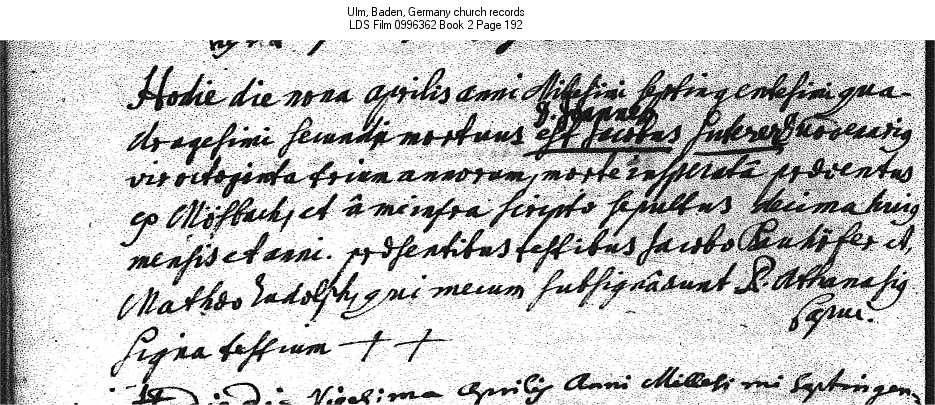 Ulm, Baden, Germany church records
LDS Film 0996362 Book 2 Page 192
Hodie die nona aprilis anni Millesimi septingentesimi qua-
dragesimi secundi mortuus est Jacobus
vir octoginta trium annorum, morte insperata præventus
Mösbach, et à me infra scripto sepultus decima huius
mensis et anni. præsentibus testibus Jacobo et
Matheo Ludolph, qui mecum subsignarunt P. Athanasius
signa testium + +
Vigesima aprilis Anni Millesimi Septingen-